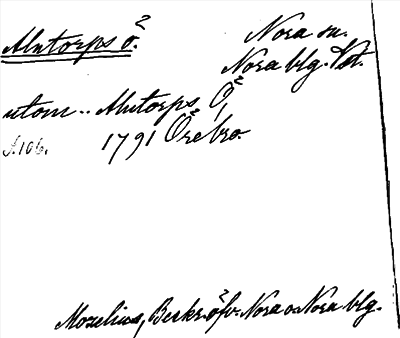 Alntorps ö.
Nora sn.
Nora blg. Vst.
utom .. Alntorps Ö,
s. 106. 1791 Örebro.
Mozelius, Beskr. öfv. Nora o. Nora blg.